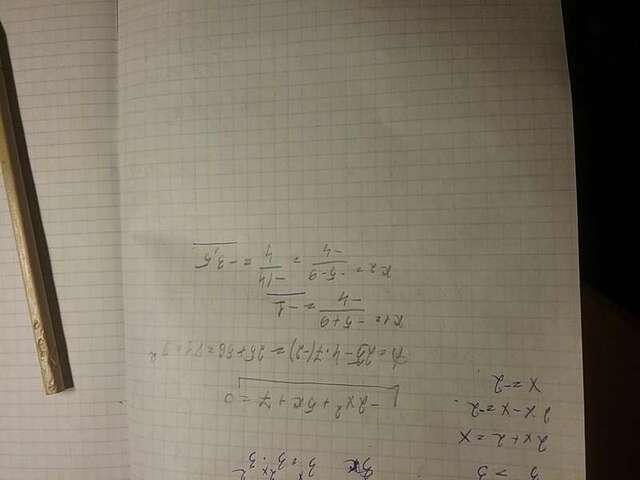 3ˣ = 3²ˣ · 3²
3 = 3
2x + 2 = x
2x - x = -2.
x = -2.
-2x² + 5x + 7 = 0
D = 25 - 4 · 7(-2) = 25 + 56 = 81 = 9²
x₁ = -5+9/-4 = -1
x₂ = -5-9/-4 = -14/4 = -3,5